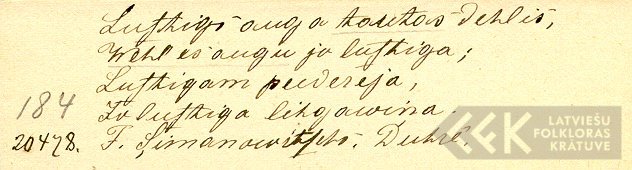 Luſtigs auga tautas dehls,
Wehl es augu jo luſtiga;
Luſtigam peedereja,
Jo luſtiga lihgawina.
184
20478. F. Simanowitſchs. Duhre.
LATVIEŠU
FOLKLORAS
KRĀTUVE